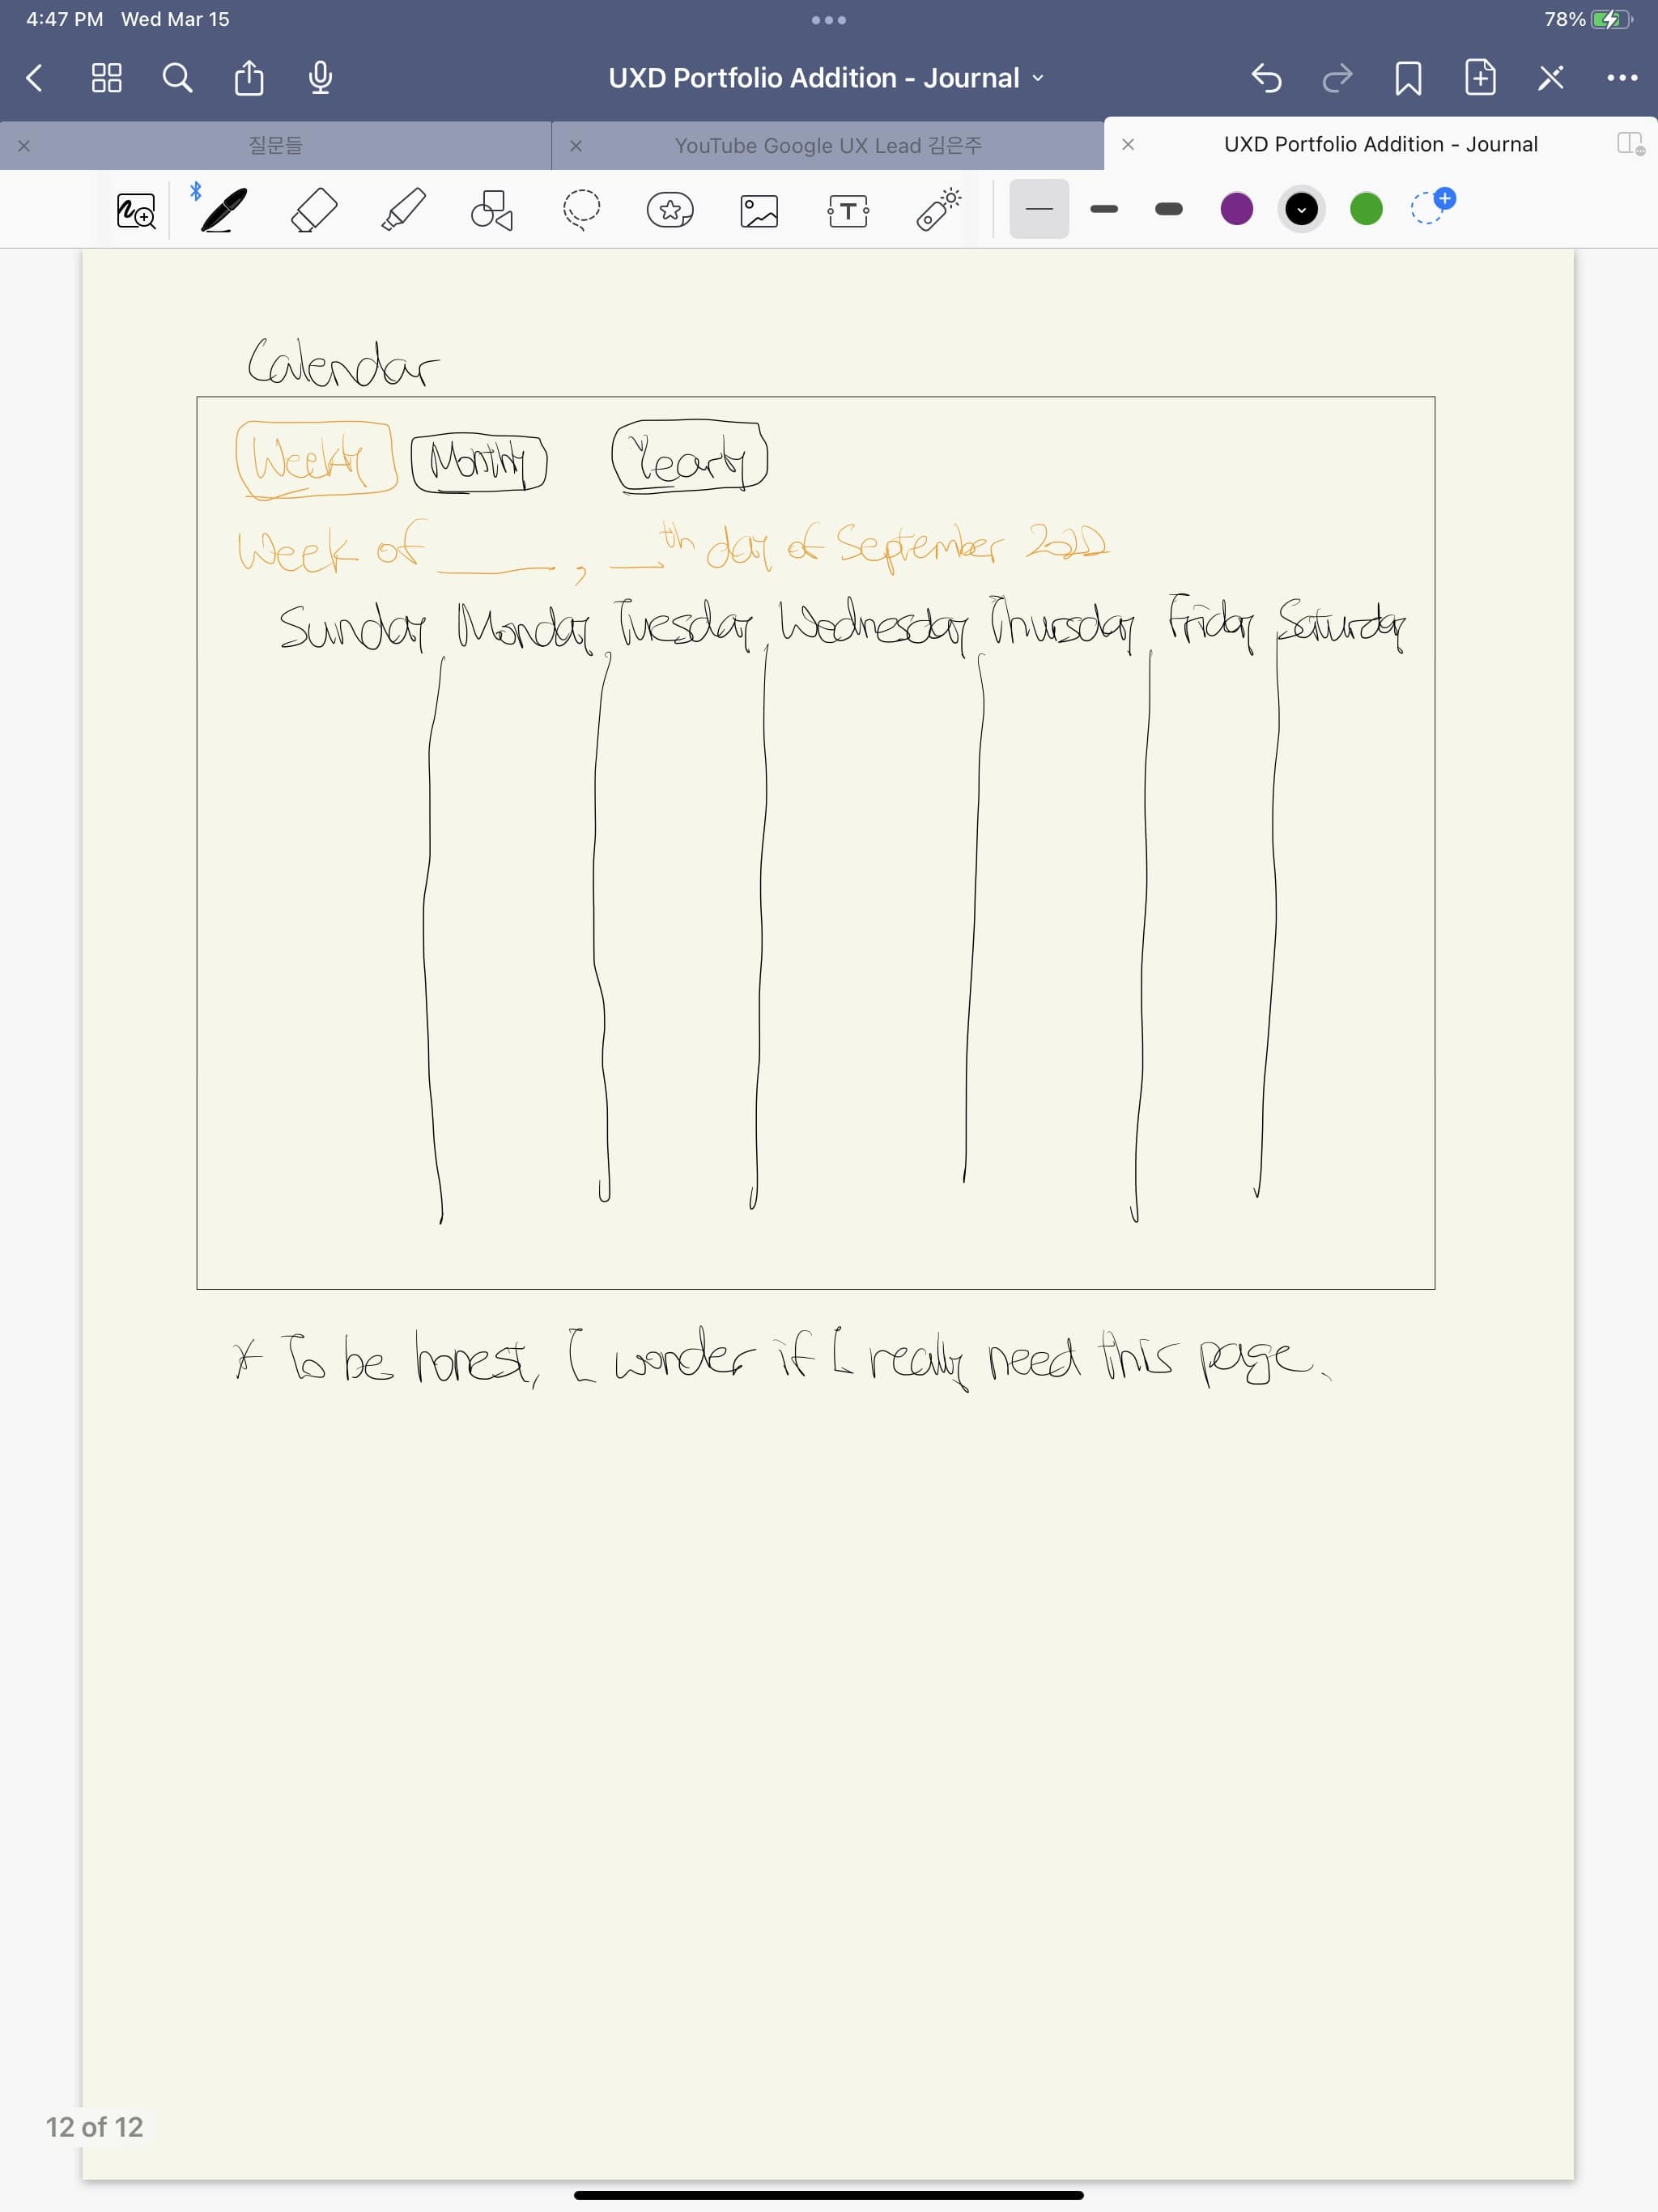 4:47 PM Wed Mar 15 78%
UXD Portfolio Addition - Journal
질문들 YouTube Google UX Lead 김은주 UXD Portfolio Addition - Journal
Calendar
Weekly Monthly Yearly
Week of ____, __th day of September 2022
Sunday Monday Tuesday Wednesday Thursday Friday Saturday
* To be honest, I wonder if I really need this page.
12 of 12